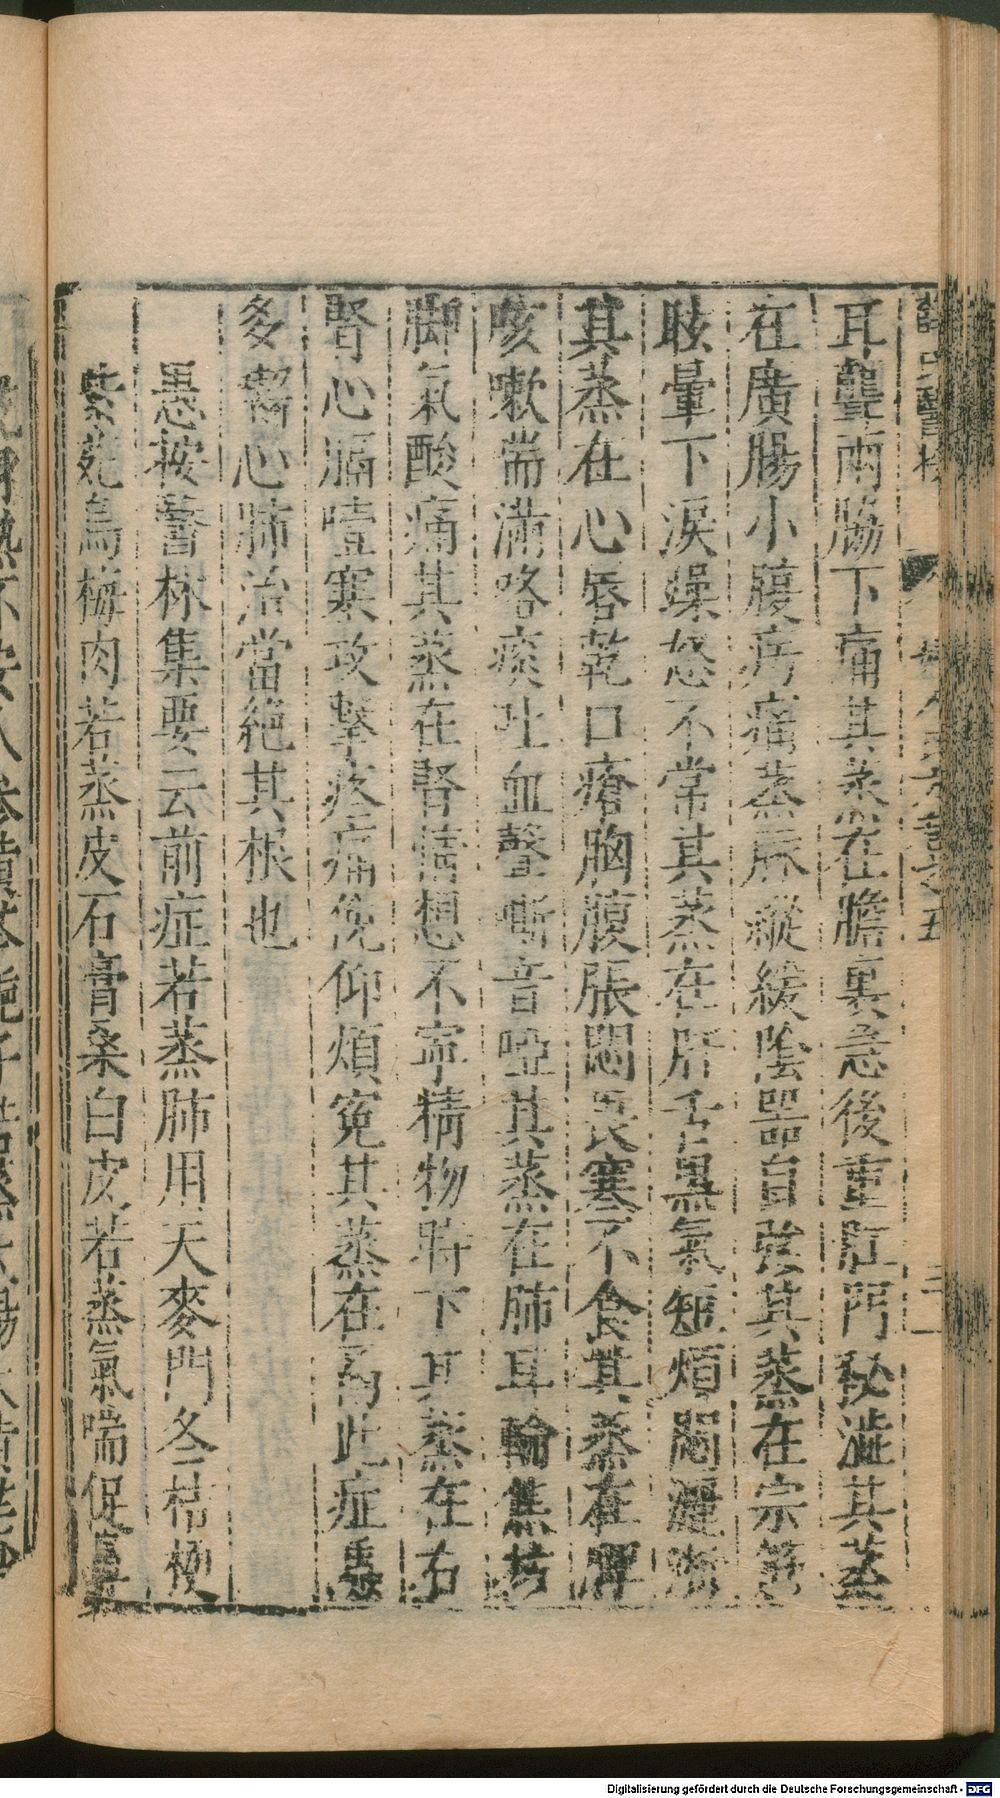 耳聾兩脇下痛其蒸在膽裏急後重肛門祕澁其蒸
在廣腸小腹疞痛蒸脉縱緩陰器自強其蒸在宗筋
眩暈下淚躁怒不常其蒸在肝舌黒氣短煩悶灑淅
其蒸在心唇乾口瘡胸腹脹悶畏寒不食其蒸在脾
咳嗽喘滿咯痰吐血聲嘶音啞其蒸在肺耳輪焦枯
脚氣酸痛其蒸在腎情想不寧精物時下其蒸在右
腎心膈噎塞攻擊疼痛俛仰煩寃其蒸在鬲此症
多 心肺治當絶其根也
愚按醫林集要云前症若蒸肺用天麥門冬桔梗
紫菀烏梅肉若蒸皮石膏桑白皮若蒸氣喘促
Digitalisierung gefördert durch die Deutsche Forschungsgemeinschaft - DFG